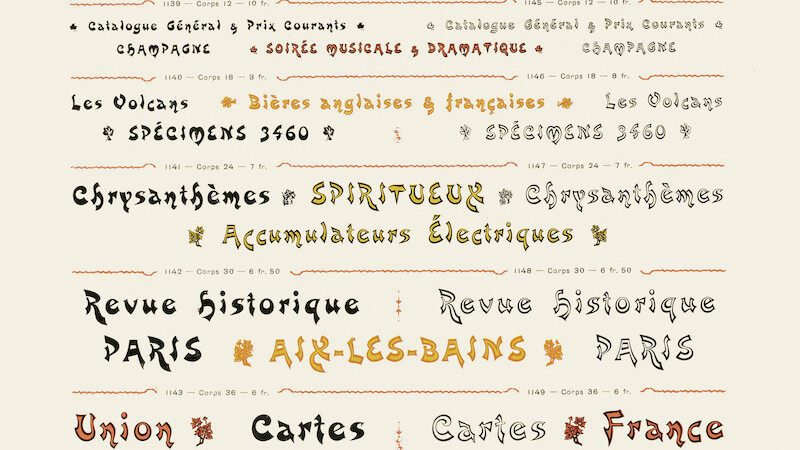 1139 — Corps 12 — 10 fr. 1145 — Corps 12 — 10 fr.
Catalogue Général & Prix Courants Catalogue Général & Prix Courants
CHAMPAGNE SOIRÉE MUSICALE & DRAMATIQUE CHAMPAGNE
1140 — Corps 18 — 3 fr. 1146 — Corps 18 — 8 fr.
Les Volcans Bières anglaises & françaises Les Volcans
SPÉCIMENS 3460 SPÉCIMENS 3460
1141 — Corps 24 — 7 fr. 1147 — Corps 24 — 7 fr.
Chrysanthèmes SPIRITUEUX Chrysanthèmes
Accumulateurs Électriques
1142 — Corps 30 — 6 fr. 50 1148 — Corps 30 — 6 fr. 50
Revue historique Revue historique
PARIS AIX-LES-BAINS PARIS
1143 — Corps 36 — 6 fr. 1149 — Corps 36 — 6 fr.
Union Cartes Cartes France